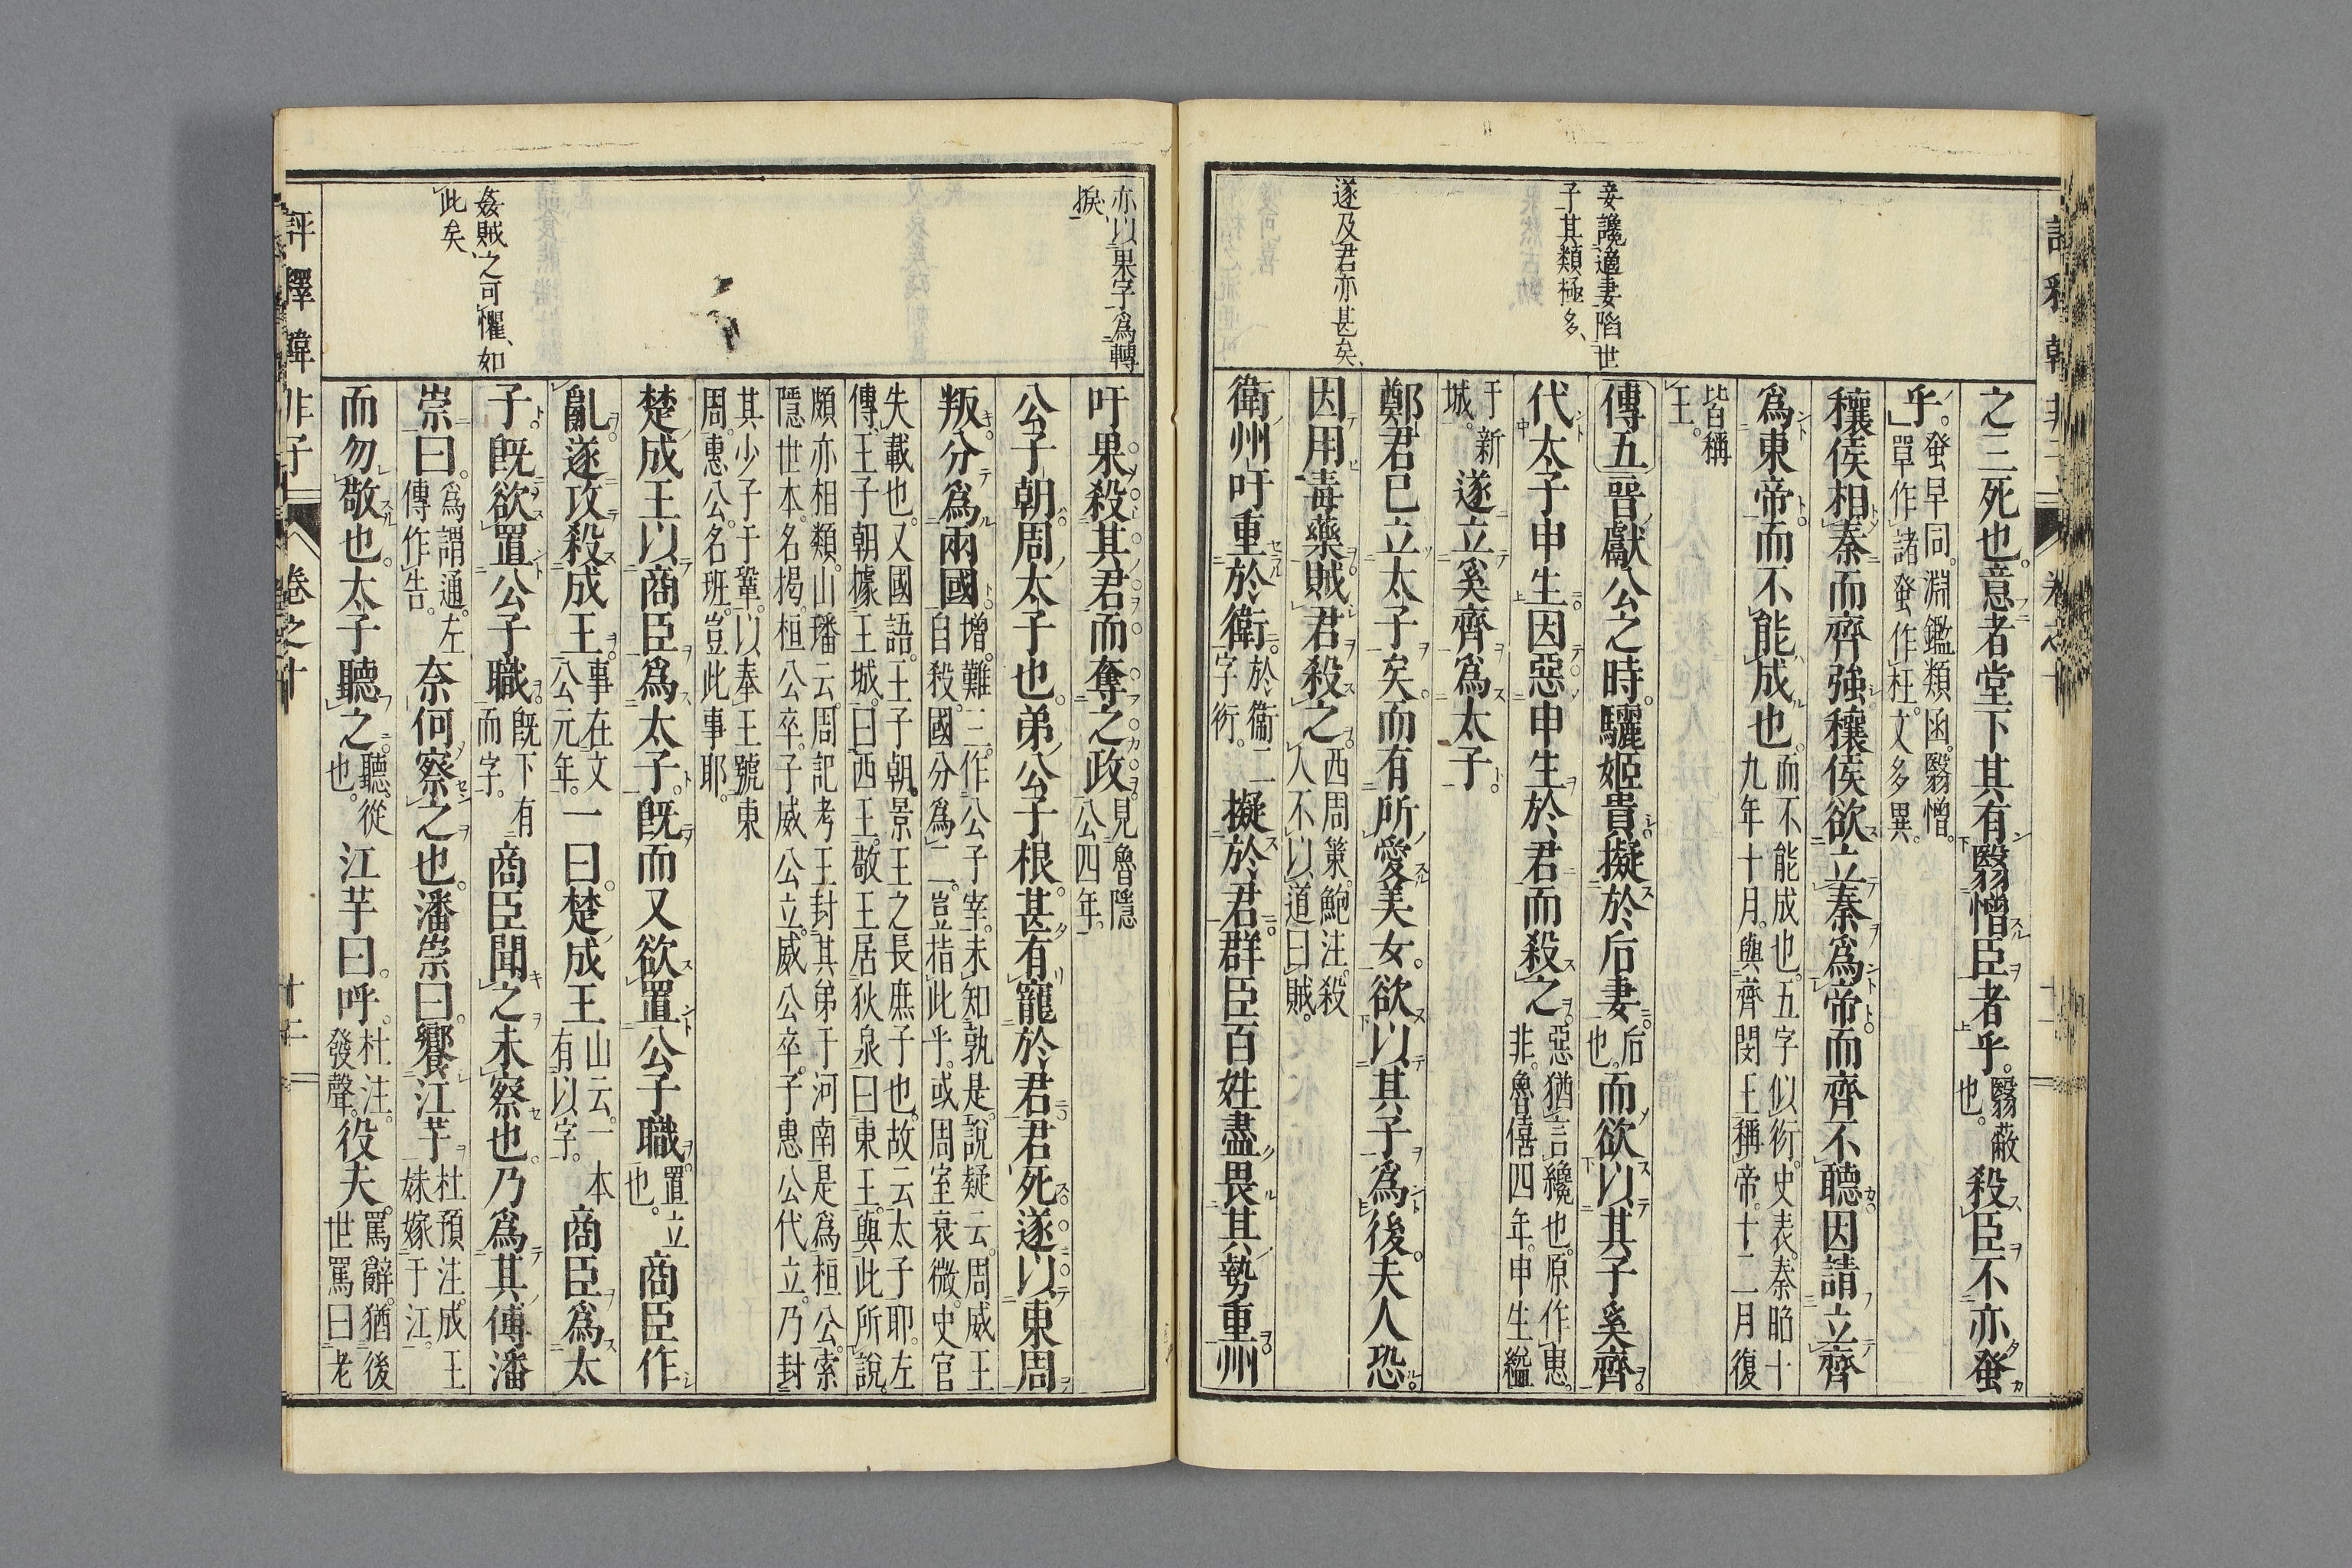 妾讒適妻、陷世
子其類極多、
遂及君亦甚矣、
之三死也。意者堂下其有翳憎臣者乎。翳蔽也。殺臣不亦蚤
乎。蚤早同。淵鑑類函。翳憎。單作諸。蚤作枉。文多異。
穰侯相秦而齊強穰侯欲立秦爲帝而齊不聽因請立齊
爲東帝而不能成也。而不能成也。五字似衍。史表。秦昭十九年十月。與齊閔王稱帝。十二月復
皆稱王。
傳五 晉獻公之時。驪姬貴擬於后妻。后也。而欲以其子奚齊
代太子申生因惡申生於君而殺之。惡猶言纔也。原作惠。非。魯僖四年。申生縊
于新城。遂立奚齊爲太子。
鄭君已立太子矣。而有所愛美女。欲以其子爲後。夫人恐。
因用毒藥賊君殺之。西周策。鮑注。殺人不以道曰賊。
衛州吁重於衛。於衞二字衍。擬於君。群臣百姓盡畏其勢重州
亦以果字爲轉
捩
姦賊之可懼、如
此矣、
吁果殺其君而奪之政。見魯隱公四年。
公子朝周太子也。弟公子根。甚有寵於君。君死遂以東周
叛分爲兩國。增。難三。作公子宰。未知孰是。說疑云。周威王自殺。國分爲二。豈指此乎。或周室衰微。史官
失載也。又國語。王子朝。景王之長庶子也。故云太子耶。左傳。王子朝據王城。曰西王。敬王居狄泉。曰東王。與此所說。
頗亦相類。山璠云。周記考王封其弟于河南。是爲桓公。索隱世本。名揭。桓公卒。子威公立。威公卒。子惠公代立。乃封
其少子于鞏。以奉王號東周。惠公。名班。豈此事耶。
楚成王以商臣爲太子。旣而又欲置公子職。置立也。商臣作
亂遂攻殺成王。事在文公元年。一曰。楚成王山云。一本有以字。商臣爲太
子。旣欲置公子職。旣下有而字。商臣聞之未察也。乃爲其傅潘
崇曰。爲謂通。左傳作告。奈何察之也。潘崇曰。饗江芊杜預注。成王妹嫁于江。
而勿敬也。太子聽之。聽從也。江芊曰。呼。杜注。發聲。役夫。罵辭。猶後世罵曰老
評釋韓非子 卷之十